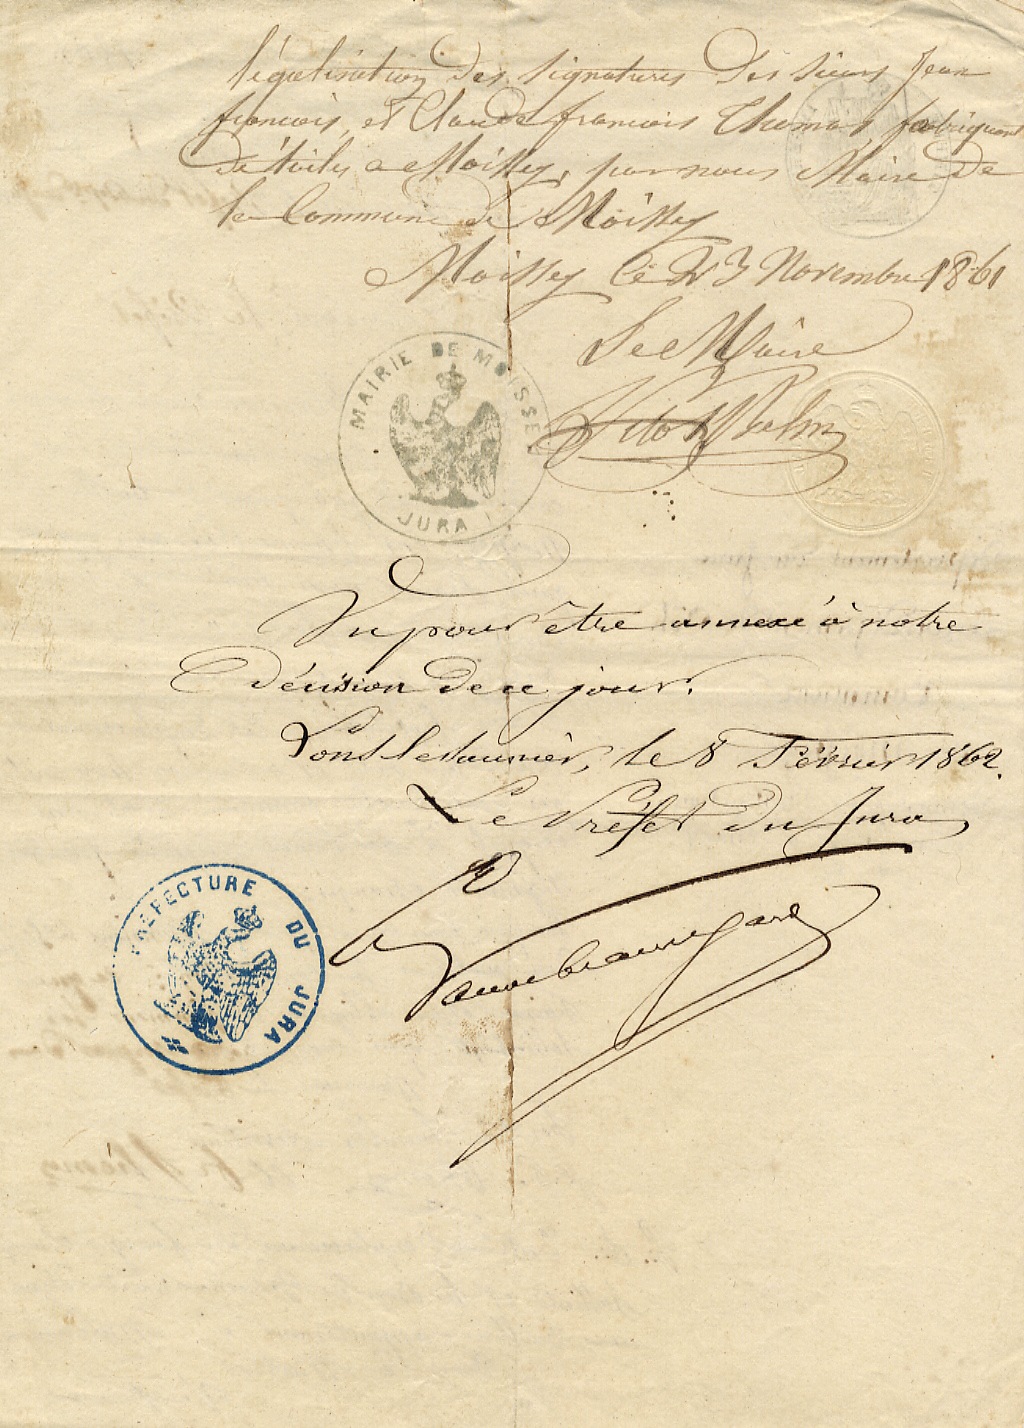 légalisation des signatures des sieurs Jean
francois, et Claude francois Thomas fabriquant
de toiles a Moissey, par nous Maire de
la Commune de Moissey
Moissey le 23 Novembre 1861
Le Maire
MAIRIE DE MOISSE
JURA
Vu pour être annexé à notre
Décision de ce jour.
Lons le saunier, le 8 Février 1862.
Le Préfet du Jura
PREFECTURE DU JURA